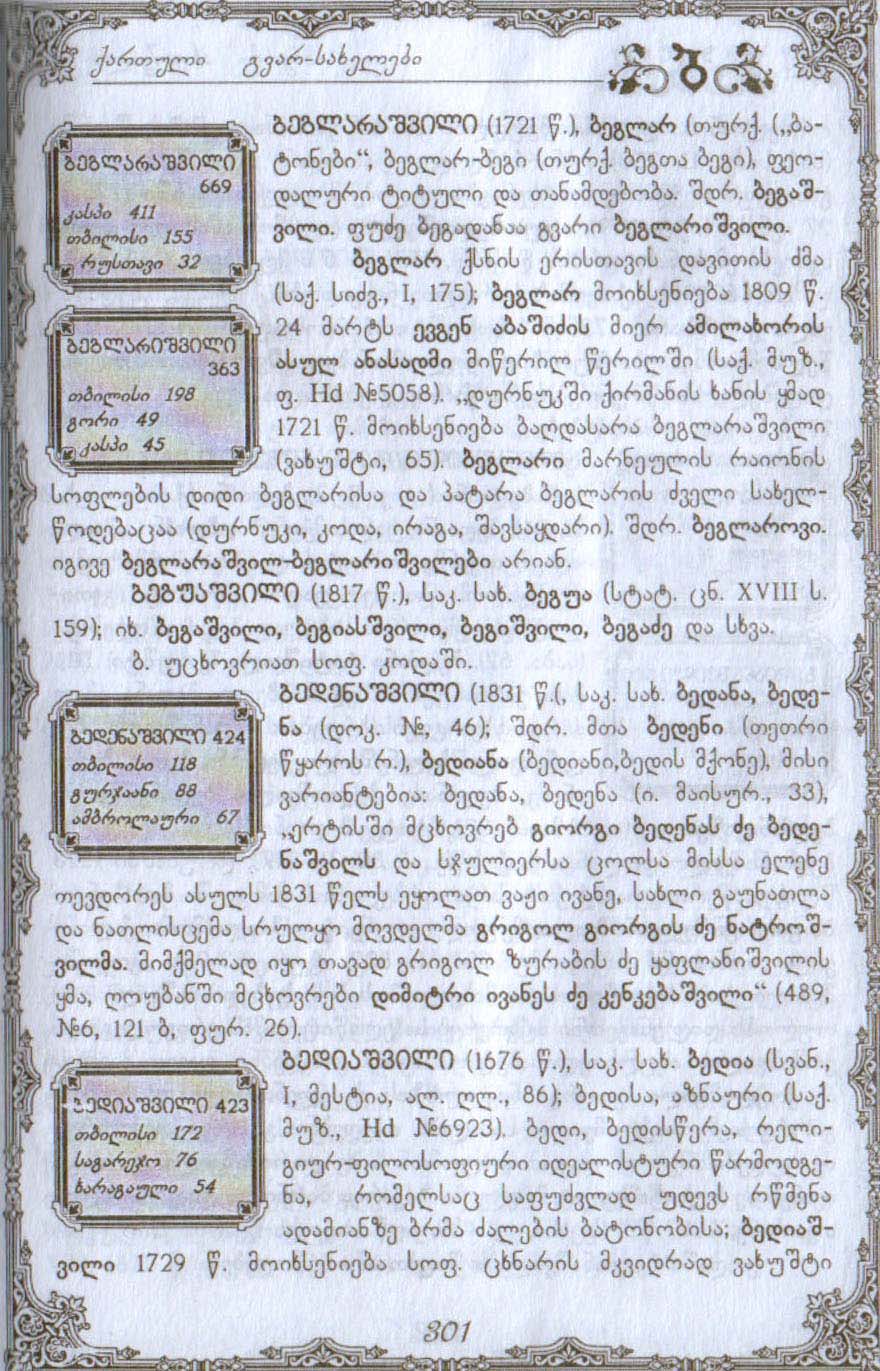 ქართული გვარ-სახელები
ბეგლარაშვილი
669
კასპი 411
თბილისი 155
რუსთავი 32
ბეგლარაშვილი (1721 წ.), ბეგლარ (თურქ. („ბა-
ტონები“, ბეგლარ-ბეგი (თურქ. ბეგთა ბეგი), ფეო-
დალური ტიტული და თანამდებობა. შდრ. ბეგაშ-
ვილი. ფუძე ბეგადანაა გვარი ბეგლარიშვილი.
ბეგლარ ქსნის ერისთავის დავითის ძმა
(საქ. სიძვ., I, 175); ბეგლარ მოიხსენიება 1809 წ.
ბეგლარიშვილი
363
თბილისი 198
გორი 49
კასპი 45
24 მარტს ევგენ აბაშიძის მიერ ამილახორის
ასულ ანასადმი მიწერილ წერილში (საქ. მუზ.,
ფ. Hd №5058). „დურნუკში ქირმანის ხანის ყმად
1721 წ. მოიხსენიება ბაღდასარა ბეგლარაშვილი
(ვახუშტი, 65). ბეგლარი მარნეულის რაიონის
სოფლების დიდი ბეგლარისა და პატარა ბეგლარის ძველი სახელ-
წოდებაცაა (დურნუკი, კოდა, ირაგა, შავსაყდარი). შდრ. ბეგლაროვი.
იგივე ბეგლარაშვილ-ბეგლარიშვილები არიან.
ბეგუაშვილი (1817 წ.), საკ. სახ. ბეგუა (სტატ. ცნ. XVIII ს.
159); იხ. ბეგაშვილი, ბეგიასშვილი, ბეგიშვილი, ბეგაძე და სხვა.
ბ. უცხოვრიათ სოფ. კოდაში.
ბედენაშვილი 424
თბილისი 118
გურჯაანი 88
ამბროლაური 67
ბედენაშვილი (1831 წ.(, საკ. სახ. ბედანა, ბედე-
ნა (დოკ. №, 46); შდრ. მთა ბედენი (თეთრი
წყაროს რ.), ბედიანა (ბედიანი,ბედის მქონე), მისი
ვარიანტებია: ბედანა, ბედენა (ი. მაისურ., 33),
„ერტისში მცხოვრებ გიორგი ბედენას ძე ბედე-
ნაშვილს და სჯულიერსა ცოლსა მისსა ელენე
თევდორეს ასულს 1831 წელს ეყოლათ ვაჟი ივანე, სახლი გაუნათლა
და ნათლისცემა სრულყო მღვდელმა გრიგოლ გიორგის ძე ნატროშ-
ვილმა. მიმქმელად იყო თავად გრიგოლ ზურაბის ძე ყაფლანიშვილის
ყმა, ღოუბანში მცხოვრები დიმიტრი ივანეს ძე კენკებაშვილი“ (489,
№6, 121 ბ, ფურ. 26).
ბედიაშვილი 423
თბილისი 172
საგარეჯო 76
ხარაგაული 54
ბედიაშვილი (1676 წ.), საკ. სახ. ბედია (სვან.,
I, მესტია, ალ. ღლ., 86); ბედისა, აზნაური (საქ.
მუზ., Hd №6923). ბედი, ბედისწერა, რელი-
გიურ-ფილოსოფიური იდეალისტური წარმოდგე-
ნა, რომელსაც საფუძვლად უდევს რწმენა
ადამიანზე ბრმა ძალების ბატონობისა; ბედიაშ-
ვილი 1729 წ. მოიხსენიება. სოფ. ცხნარის მკვიდრად ვახუშტი
301